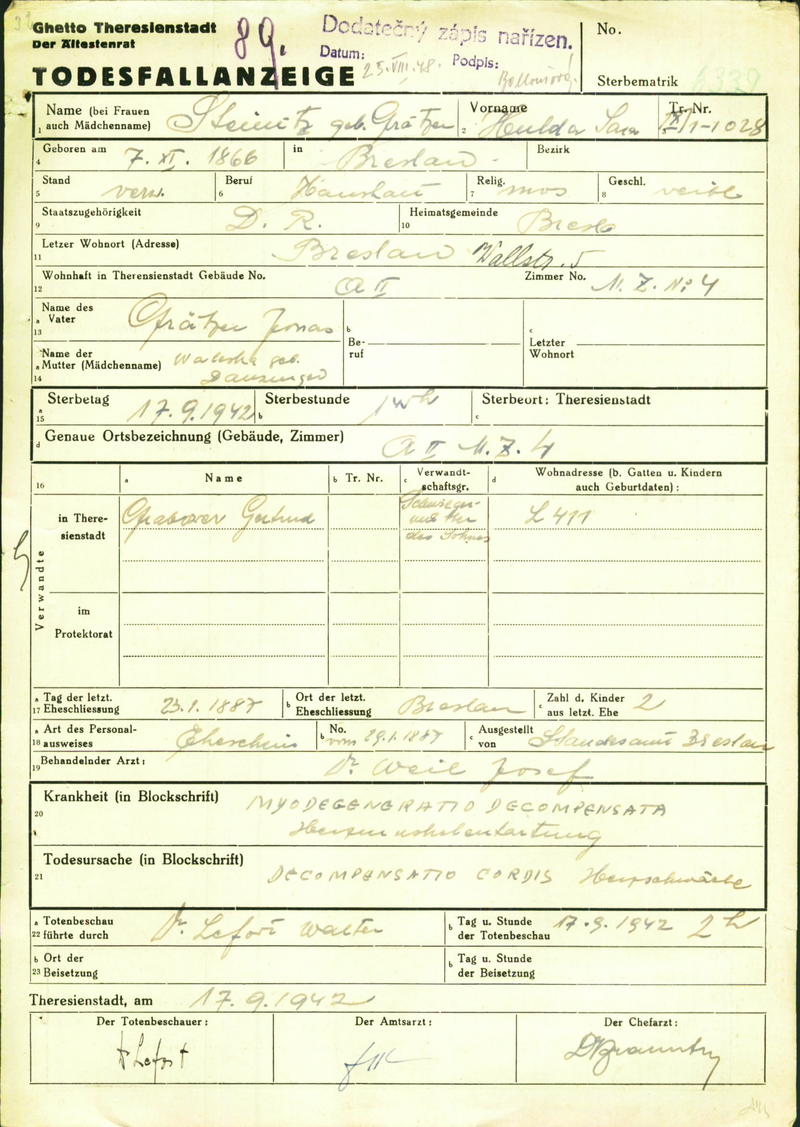 Ghetto Theresienstadt
Der Ältestenrat
89.
Dodatečný zápis nařízen.
Datum: 25. VIII. 48. Podpis:
No.
TODESFALLANZEIGE
Sterbematrik
1 Name (bei Frauen auch Mädchenname) Steinitz geb. Grätzer
2 Vorname Hulda Sara
Tr. Nr. IX/1-1028
4 Geboren am 7. XI. 1866 in Breslau Bezirk
5 Stand verw. 6 Beruf Hausfrau 7 Relig. mos 8 Geschl. weibl
9 Staatszugehörigkeit D. R. 10 Heimatsgemeinde Bresl
11 Letzer Wohnort (Adresse) Breslau Wallstr. 5
12 Wohnhaft in Theresienstadt Gebäude No. A II Zimmer No. M. Z. No 4
13 a Name des Vater Grätzer Jonas
b Beruf
c Letzter Wohnort
14 a Name der Mutter (Mädchenname) geb. Danziger
15 a Sterbetag 17. 9. 1942 b Sterbestunde 1 wh c Sterbeort: Theresienstadt
d Genaue Ortsbezeichnung (Gebäude, Zimmer) A II M. Z. 4
16 a Name b Tr. Nr. c Verwandtschaftsgr. d Wohnadresse (b. Gatten u. Kindern auch Geburtdaten) :
Verwandte
in Theresienstadt Gertrud Schwiegermutter des Sohnes L 411
im Protektorat
17 a Tag der letzt. Eheschliessung 23. 1. 1887 b Ort der letzt. Eheschliessung Breslau c Zahl d. Kinder aus letzt. Ehe 2
18 a Art des Personalausweises Eheschein b No. vom 29. 1. 1887 c Ausgestellt von Standesamt Breslau
19 Behandelnder Arzt : Dr Weil Josef
20 Krankheit (in Blockschrift) MYODEGENERATIO DECOMPENSATA
Herzmuskelentartung
21 Todesursache (in Blockschrift) DECOMPENSATIO CORDIS Herzschwäche
22 a Totenbeschau führte durch Dr. Walter b Tag u. Stunde der Totenbeschau 17. 9. 1942 2 h
23 b Ort der Beisetzung b Tag u. Stunde der Beisetzung
Theresienstadt, am 17. 9. 1942
Der Totenbeschauer : Der Amtsarzt : Der Chefarzt :